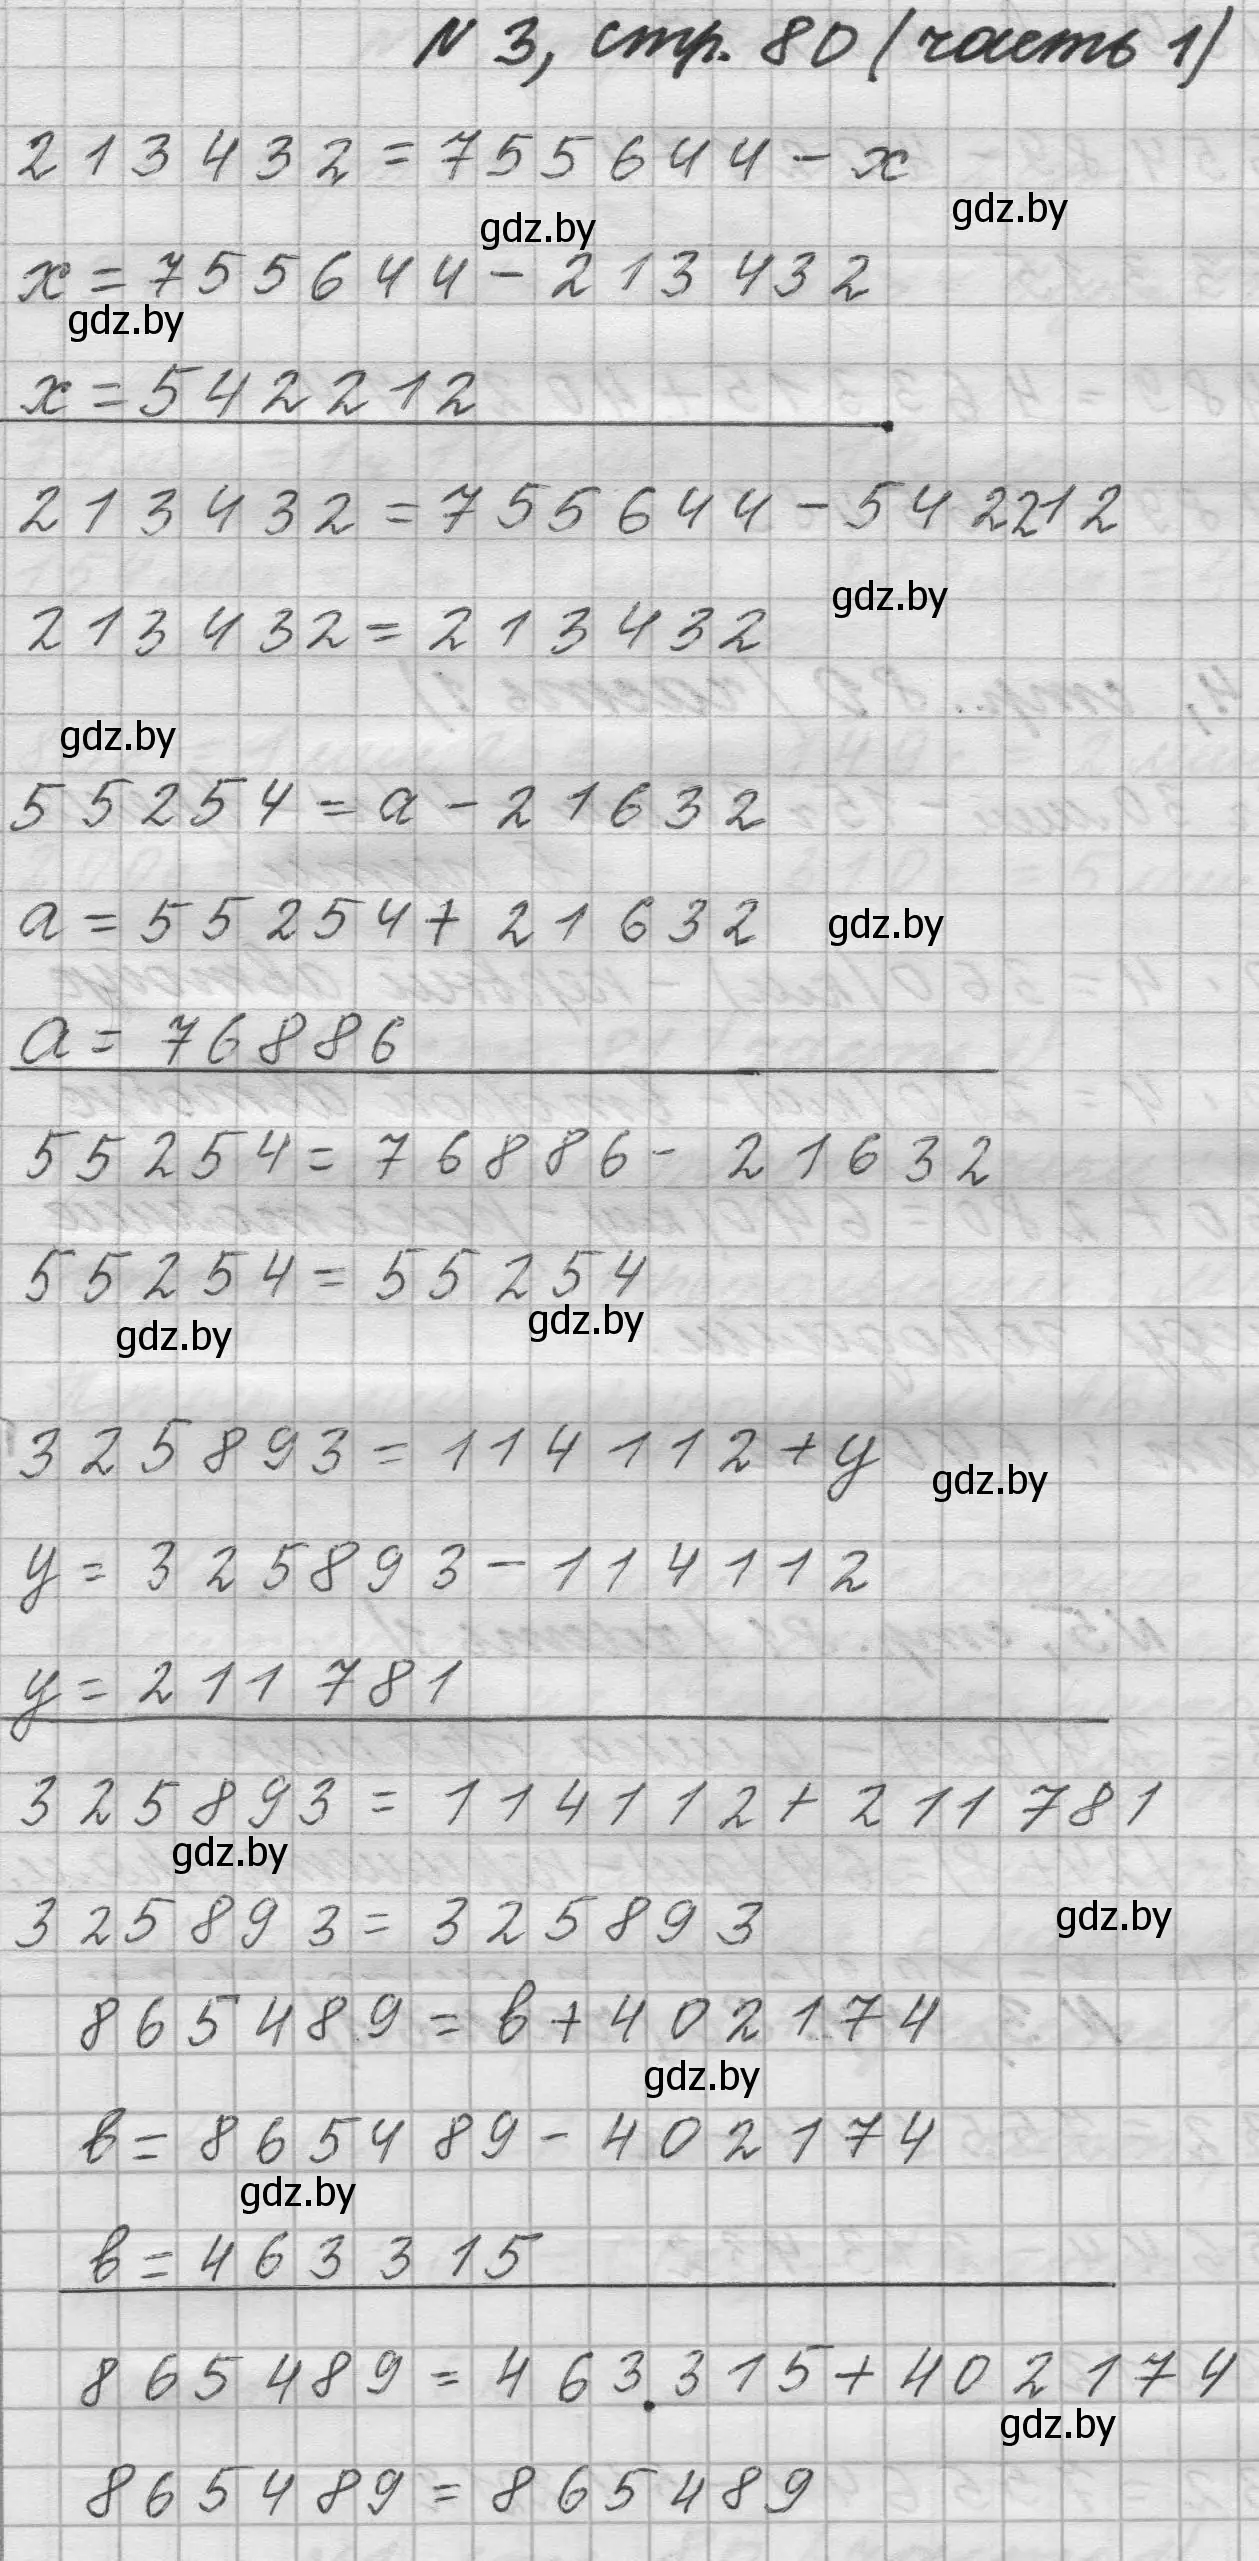 N 3, стр. 80 (часть 1)
213432=755644-x
gdz.by
gdz.by
x=755644-213432
gdz.by
x=542212
213432=755644-542212
gdz.by
213432=213432
gdz.by
55254=a-21632
a=55254+21632
gdz.by
a=76886
55254=76886-21632
55254=55254
gdz.by
gdz.by
325893=114112+y
gdz.by
y=325893-114112
y=211781
325893=114112+211781
gdz.by
325893=325893
gdz.by
865489=b+402174
gdz.by
b=865489-402174
gdz.by
b=463315
865489=463315+402174
gdz.by
865489=865489